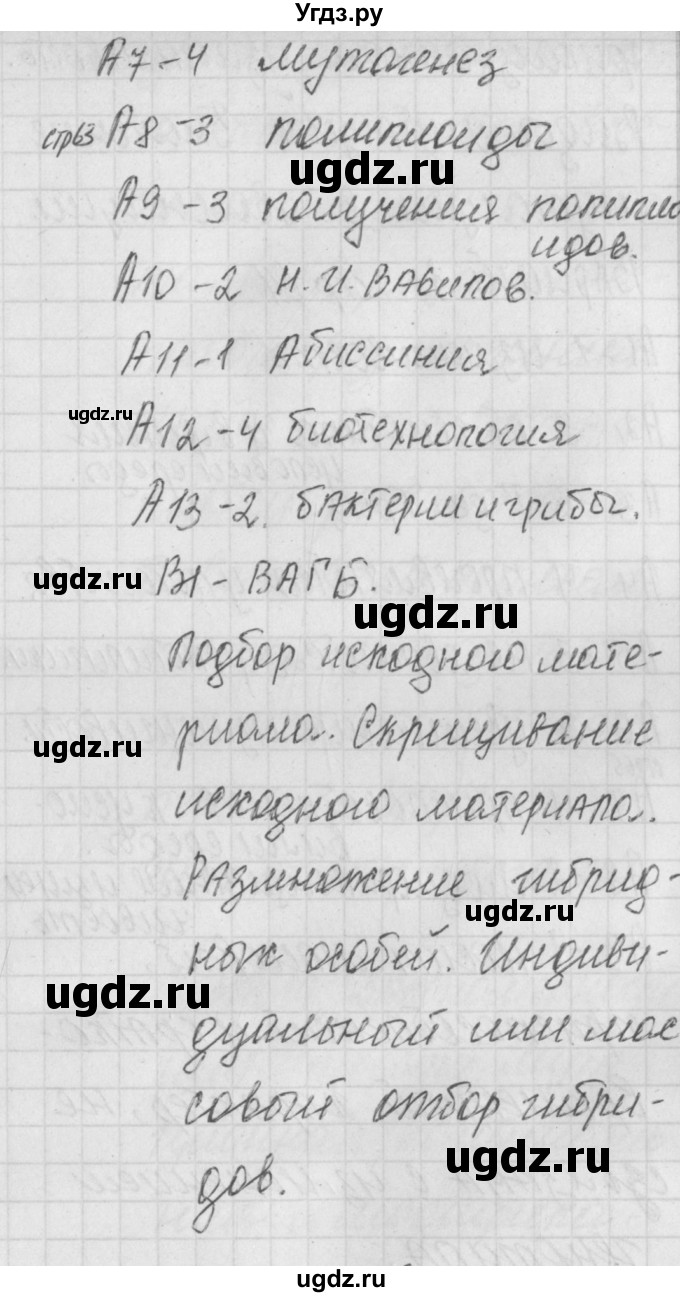 Угдз.ру
А7-4 мутагенез
стр63 А8-3 полиплоиды
ugdz.ru
А9-3 получения полипло
идов.
А10-2 Н.И.Вавилов.
А11-1 Абиссиния
ugdz.ru
А12-4 биотехнология
А13-2. бактерии и грибы.
ugdz.ru
В1-ВАГБ.
ugdz.ru
Подбор исходного мате-
риала. Скрещивание
ugdz.ru
исходного материала.
Размножение гибрид-
ugdz.ru
ных особей. Индиви-
ugdz.ru
дуальный или мас
совый отбор гибри-
ugdz.ru
дов.
ugdz.ru